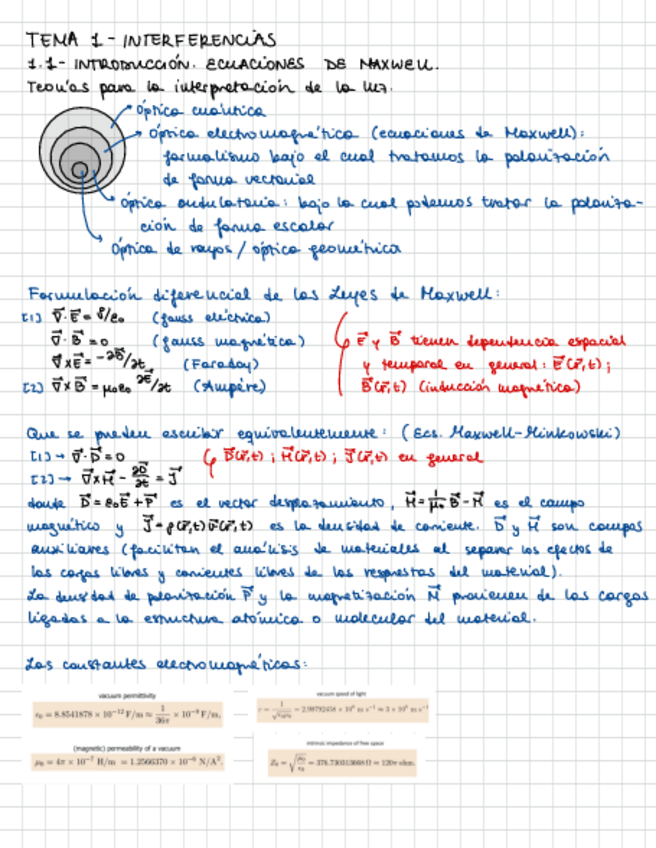 TEMA 1 - INTERFERENCIAS
1.1- INTRODUCCIÓN. ECUACIONES DE MAXWELL.
Teorías para la interpretación de la luz.
óptica cuántica
óptica electromagnética (ecuaciones de Maxwell):
formalismo bajo el cual tratamos la polarización
de forma vectorial
óptica ondulatoria: bajo la cual podemos tratar la polariza-
ción de forma escalar
óptica de rayos / óptica geométrica
Formulación diferencial de las Leyes de Maxwell:
[1] ∇⃗·E⃗ = ρ/ε₀ (Gauss eléctrica)
∇⃗·B⃗ = 0 (gauss magnética)
∇⃗×E⃗ = -∂B⃗/∂t (Faraday)
[2] ∇⃗×B⃗ = μ₀ε₀ ∂E⃗/∂t (Ampére)
E⃗ y B⃗ tienen dependencia espacial
y temporal en general: E⃗(r⃗,t);
B⃗(r⃗,t) (inducción magnética)
Que se pueden escribir equivalentemente: (Ecs. Maxwell-Minkowski)
[1] → ∇⃗·D⃗ = 0
D⃗(r⃗,t) ; H⃗(r⃗,t) ; J⃗(r⃗,t) en general
[2] → ∇⃗×H⃗ - ∂D⃗/∂t = J⃗
donde D⃗ = ε₀E⃗ + P⃗ es el vector desplazamiento, H⃗ = 1/μ₀ B⃗ - M⃗ es el campo
magnético y J⃗ = ρ(r⃗,t)v⃗(r⃗,t) es la densidad de corriente. D⃗ y H⃗ son campos
auxiliares (facilitan el análisis de materiales al separar los efectos de
las cargas libres y corrientes libres de las respuestas del material).
La densidad de polarización P⃗ y la magnetización M⃗ provienen de las cargas
ligadas a la estructura atómica o molecular del material.
Las constantes electromagnéticas:
vacuum permittivity
ε₀ = 8.8541878 × 10⁻¹² F/m ≈ 1/36π × 10⁻⁹ F/m,
vacuum speed of light
c = 1/√ε₀μ₀ = 2.99792458 × 10⁸ m s⁻¹ ≈ 3 × 10⁸ m s⁻¹
(magnetic) permeability of a vacuum
μ₀ = 4π × 10⁻⁷ H/m = 1.2566370 × 10⁻⁶ N/A².
intrinsic impedance of free space
Z₀ = √μ₀/ε₀ = 376.730313668 Ω ≈ 120π ohm.